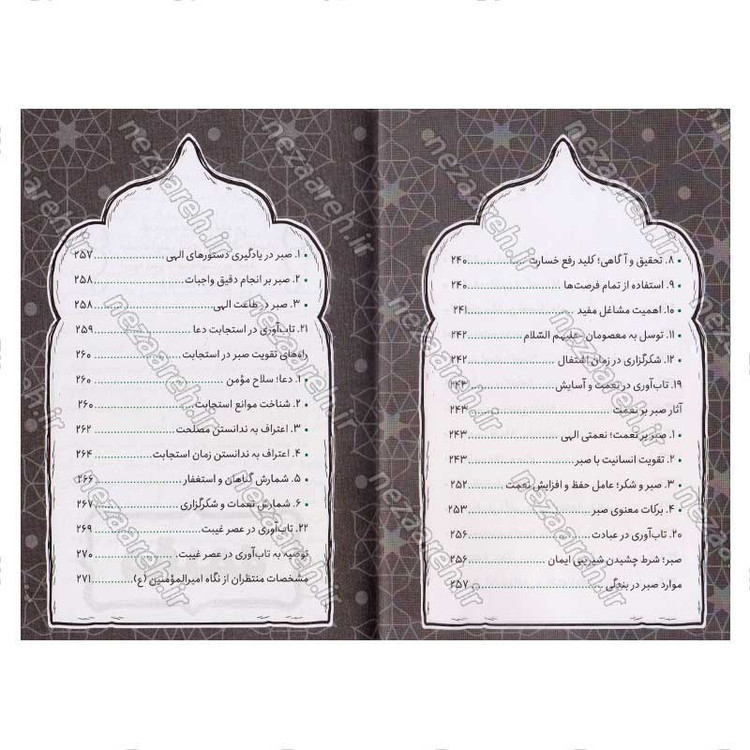 • ۸. تحقیق و آگاهی؛ کلید رفع خسارت ........ ۲۴۰
• ۹. استفاده از تمام فرصت‌ها ........ ۲۴۰
• ۱۰. اهمیت مشاغل مفید ........ ۲۴۱
• ۱۱. توسل به معصومان -علیهم السّلام ........ ۲۴۲
• ۱۲. شکرگزاری در زمان اشتغال ........ ۲۴۲
۱۹. تاب‌آوری در نعمت و آسایش ........ ۲۴۳
آثار صبر بر نعمت ........ ۲۴۳
• ۱. صبر بر نعمت؛ نعمتی الهی ........ ۲۴۳
• ۲. تقویت انسانیت با صبر ........ ۲۴۳
• ۳. صبر و شکر؛ عامل حفظ و افزایش نعمت ........ ۲۵۲
• ۴. برکات معنوی صبر ........ ۲۵۳
۲۰. تاب‌آوری در عبادت ........ ۲۵۶
صبر؛ شرط چشیدن شیرینی ایمان ........ ۲۵۶
موارد صبر در بندگی ........ ۲۵۷
• ۱. صبر در یادگیری دستورهای الهی ........ ۲۵۷
• ۲. صبر بر انجام دقیق واجبات ........ ۲۵۸
• ۳. صبر در طاعت الهی ........ ۲۵۸
۲۱. تاب‌آوری در استجابت دعا ........ ۲۵۹
راه‌های تقویت صبر در استجابت ........ ۲۶۰
• ۱. دعا؛ سلاح مؤمن ........ ۲۶۰
• ۲. شناخت موانع استجابت ........ ۲۶۰
• ۳. اعتراف به ندانستن مصلحت ........ ۲۶۲
• ۴. اعتراف به ندانستن زمان استجابت ........ ۲۶۴
• ۵. شمارش گناهان و استغفار ........ ۲۶۶
• ۶. شمارش نعمات و شکرگزاری ........ ۲۶۷
۲۲. تاب‌آوری در عصر غیبت ........ ۲۶۹
توصیه به تاب‌آوری در عصر غیبت ........ ۲۷۰
مشخصات منتظران از نگاه امیرالمؤمنین (ع) ........ ۲۷۱
nezaareh.ir